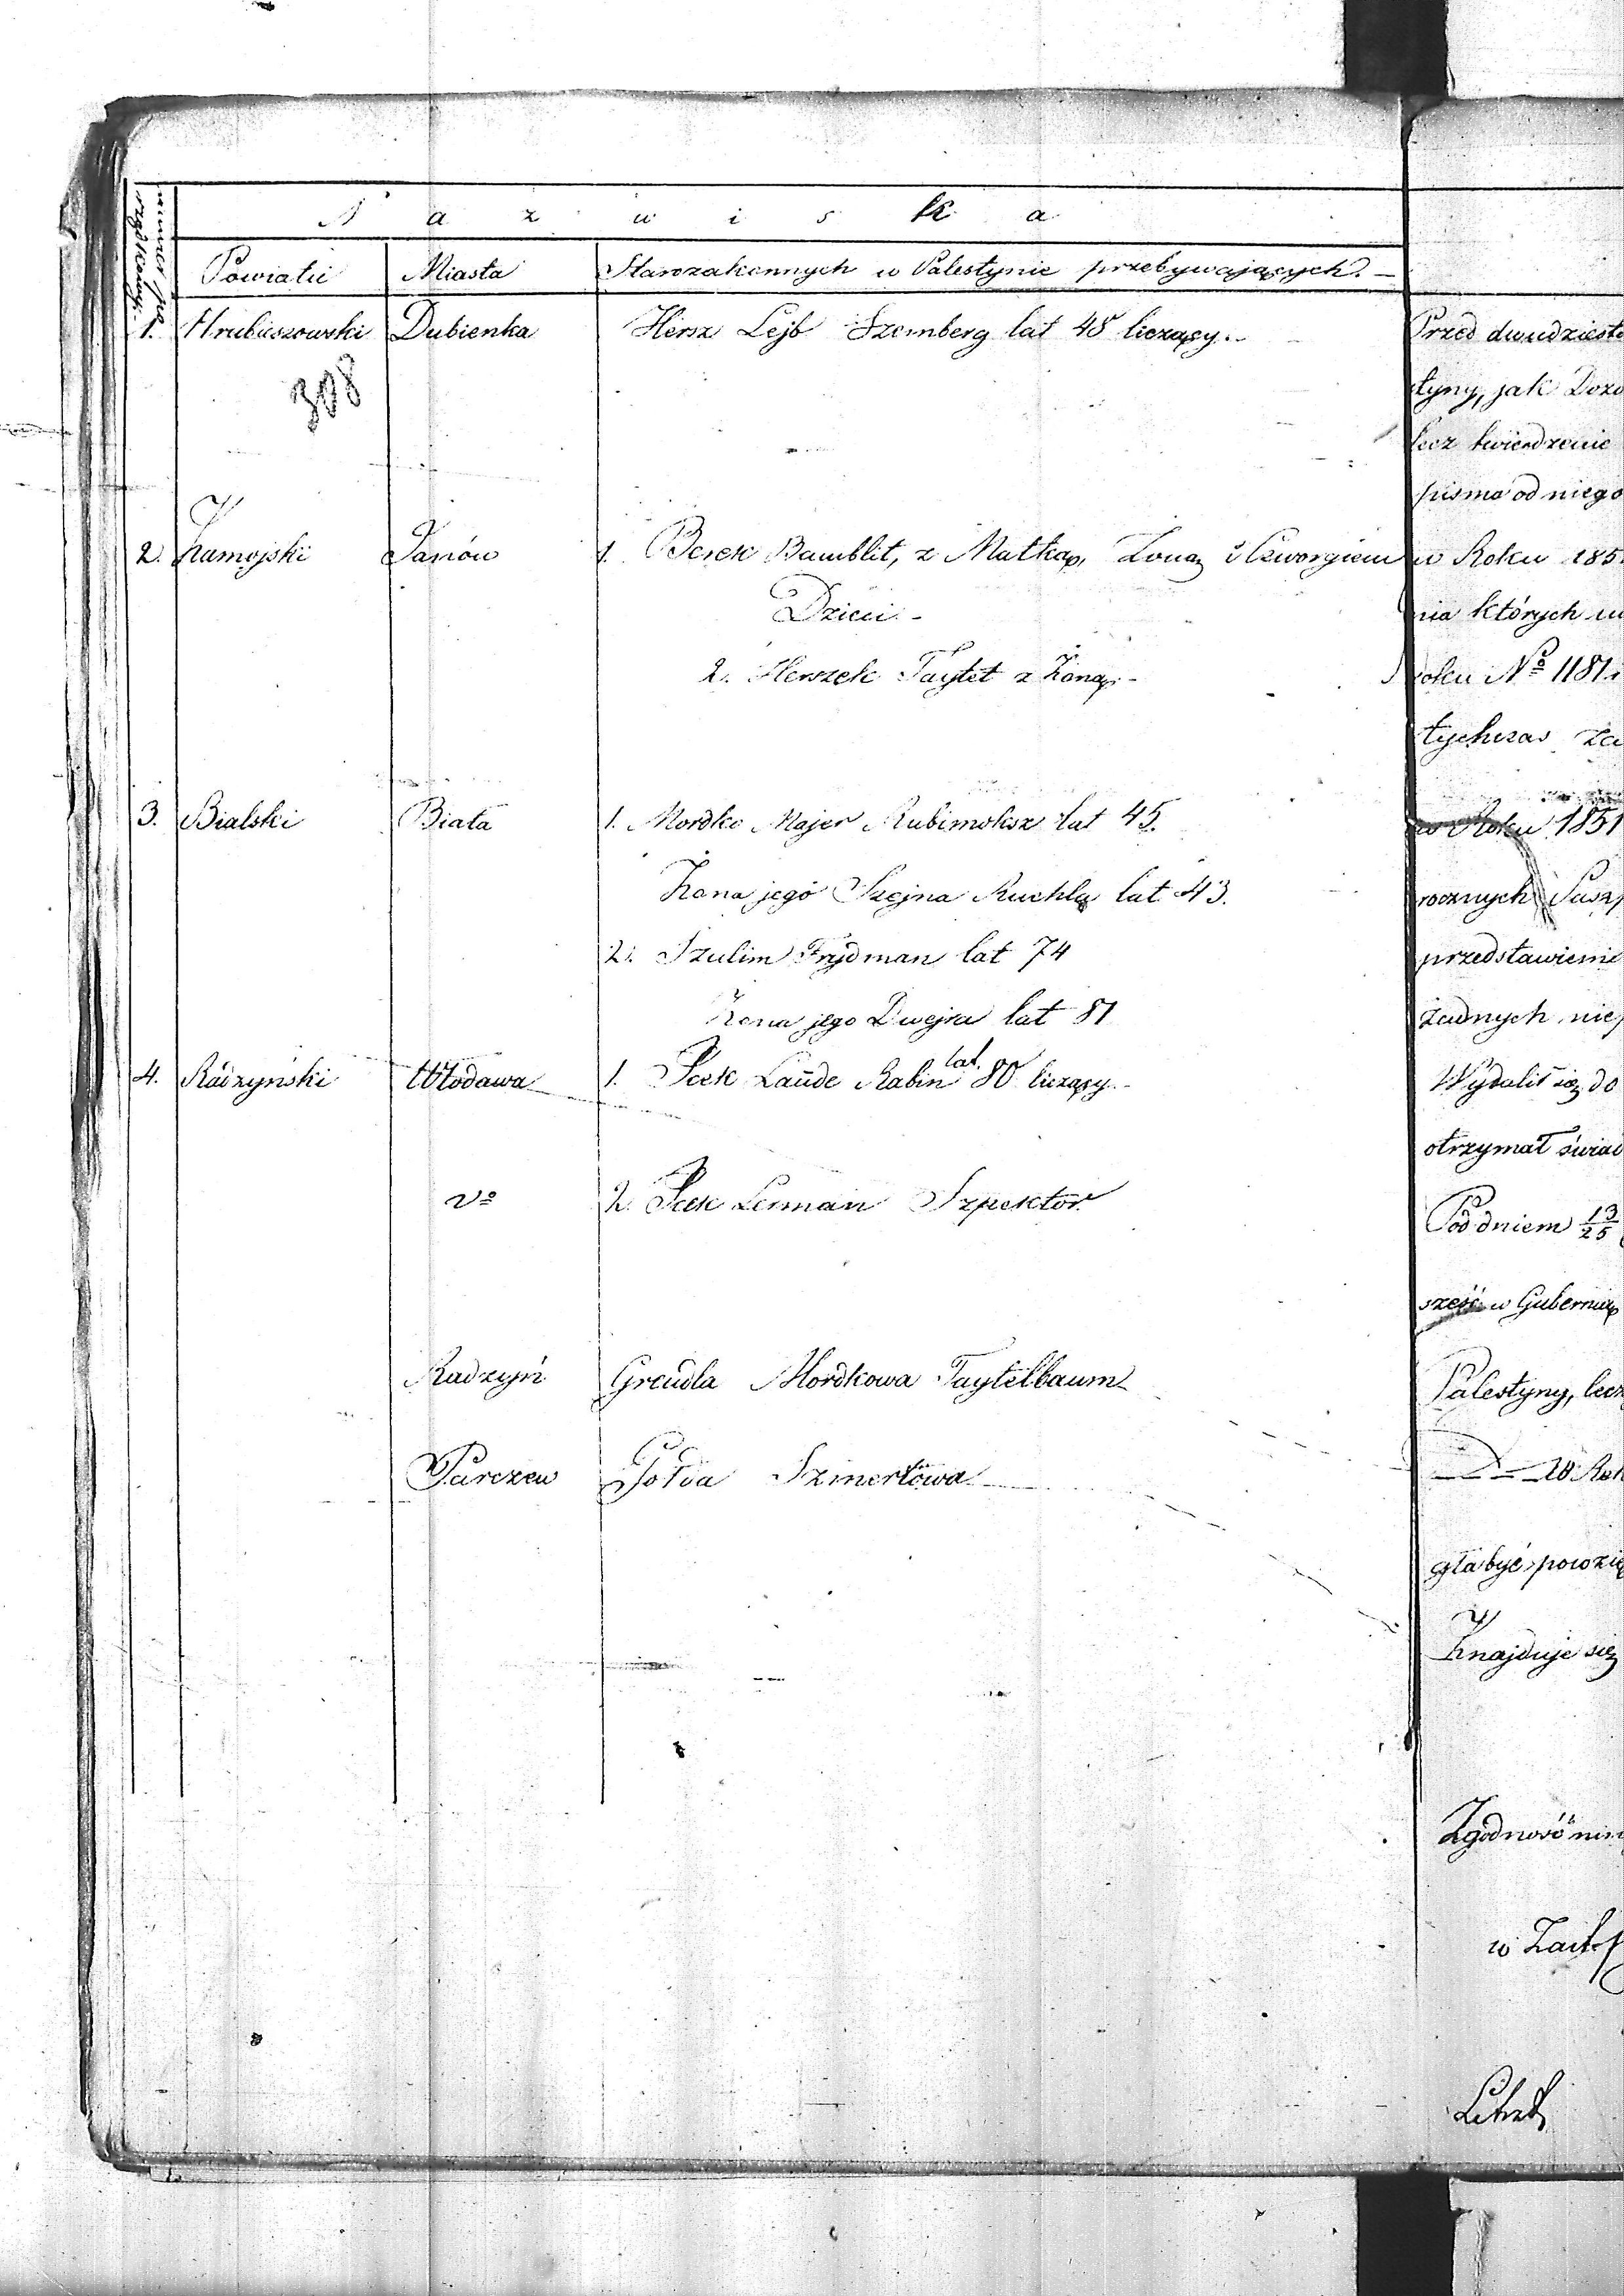 numer po
rządkowy
N a z w i s k a
Powiatu Miasta Starozakonnych w Palestynie przebywających. –
1. Hrubieszowski Dubienka Hersz Lejb Szemberg lat 48 liczący. Przed dwudziestu
308 tyny, jak Dozo
lecz twierdzenie
pisma od niego
2. Zamojski Janów 1. Berek Bamblit, z Matką, Żoną i Czworgiem w Roku 185
Dzieci. – nia których
2. Herszek Taytet z Żoną. – Roku № 1181
tychczas za
3. Bialski Biała 1. Mordko Majer lat 45. w Roku 1851
Żona jego Szejna Ruchla lat 43. rocznych Pasz
2. Szulim Frydman lat 74 przedstawienie
Żona jego Dwejra lat 81 żadnych nie
4. Radzyński Włodawa 1. Icek Laude Rabin lat 80 liczący. Wydalił się do
otrzymał świad
do 2. Icek Lerman Szpektor Pod dniem 13/25
sześć w Gubernią
Radzyń Greudla Mordkowa Taytelbaum Palestyny, lecz
Parczew Gołda Szmerlowa – D – w Rok
gła być powzię
Znajduje się
Zgodność nin
w Zast